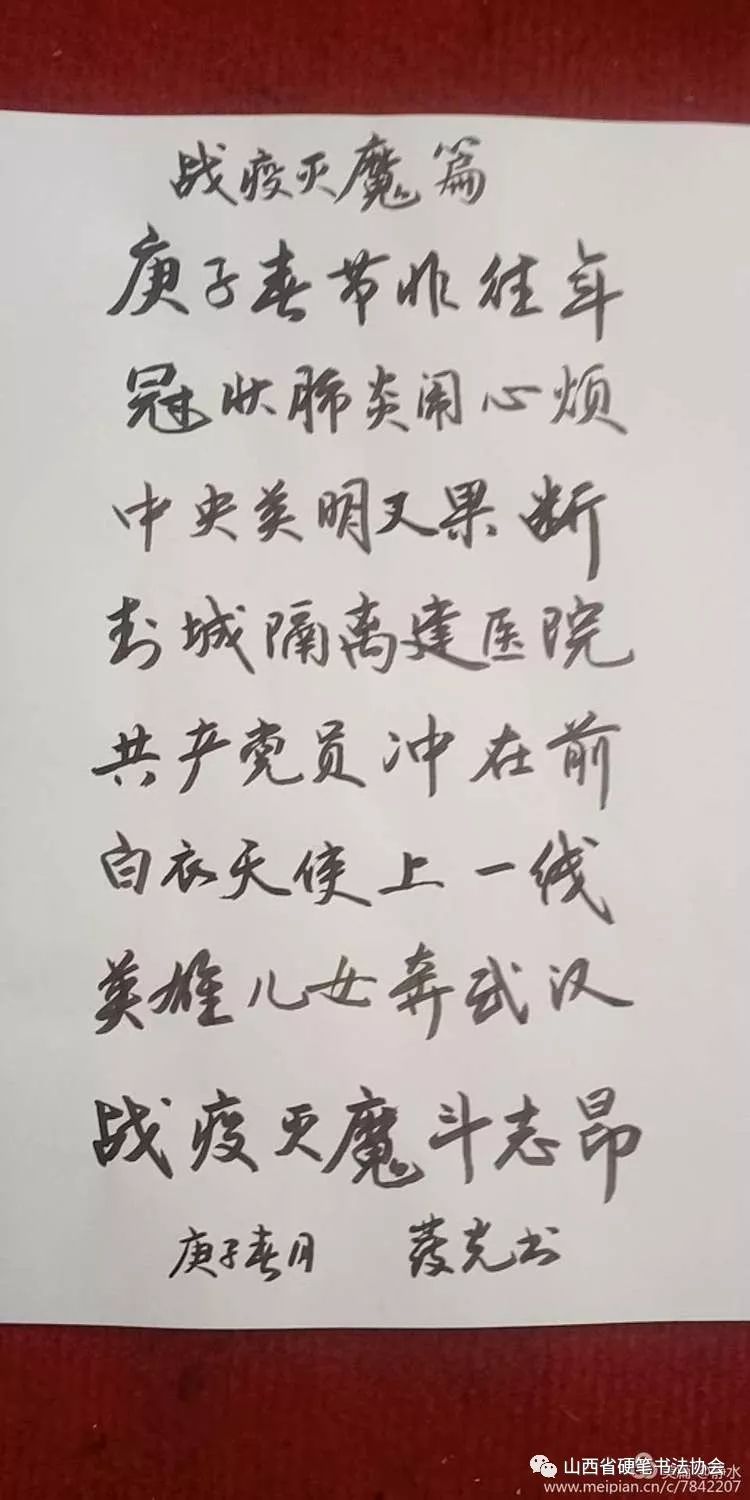 战疫灭魔篇
庚子春节非往年
冠状肺炎闹心烦
中央英明又果断
封城隔离建医院
共产党员冲在前
白衣天使上一线
英雄儿女奔武汉
战疫灭魔斗志昂
庚子春月 光书
山西省硬笔书法协会
www.meipian.cn/c/7842207